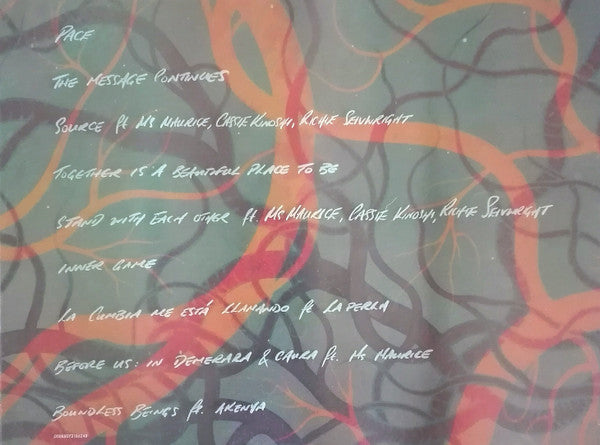 PACE
THE MESSAGE CONTINUES
SOURCE ft MS MAURICE, CASSIE KINOSHI, RICHIE SEIVWRIGHT
TOGETHER IS A BEAUTIFUL PLACE TO BE
STAND WITH EACH OTHER ft. MS MAURICE, CASSIE KINOSHI, RICHIE SEIVWRIGHT
INNER GAME
LA CUMBIA ME ESTÁ LLAMANDO ft LA PERLA
BEFORE US: IN DEMERARA & CAURA ft. MS MAURICE
BOUNDLESS BEINGS ft. AKENYA